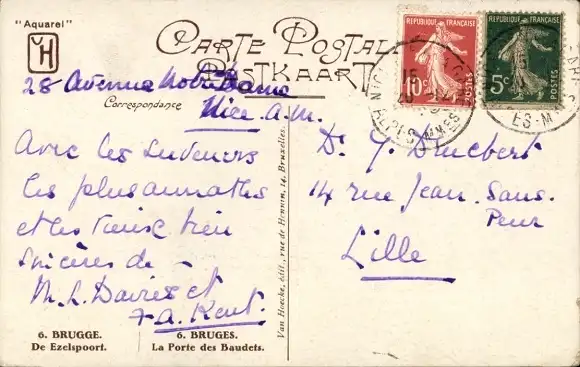 "Aquarel"
CARTE POSTALE
POSTKAART
Correspondance
28 Avenue Notre Dame
Nice. A.M.
Avec les
les plus
et les
sincères de
M. L. Davies et
A. Kent.
6. BRUGGE.
De Ezelspoort.
6. BRUGES.
La Porte des Baudets.
Van Hoecke, édit., rue de Hennin, 14, Bruxelles.
REPUBLIQUE FRANÇAISE
10c
POSTES
REPUBLIQUE FRANÇAISE
5c
POSTES
NICE
ALPES-MMES
ES-M
Dr
14 rue Jean. Sans.
Peur
Lille